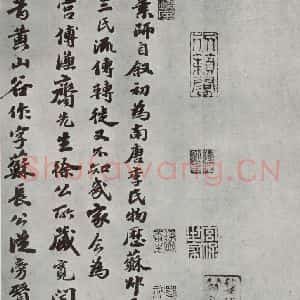 素師自叙初為南唐李氏物歷蘇
三氏流傳轉徙又不知幾家今為
宫傅謙齋先生徐公所藏寬
昔黄山谷作字蘇長公從旁
Shufawang.CN